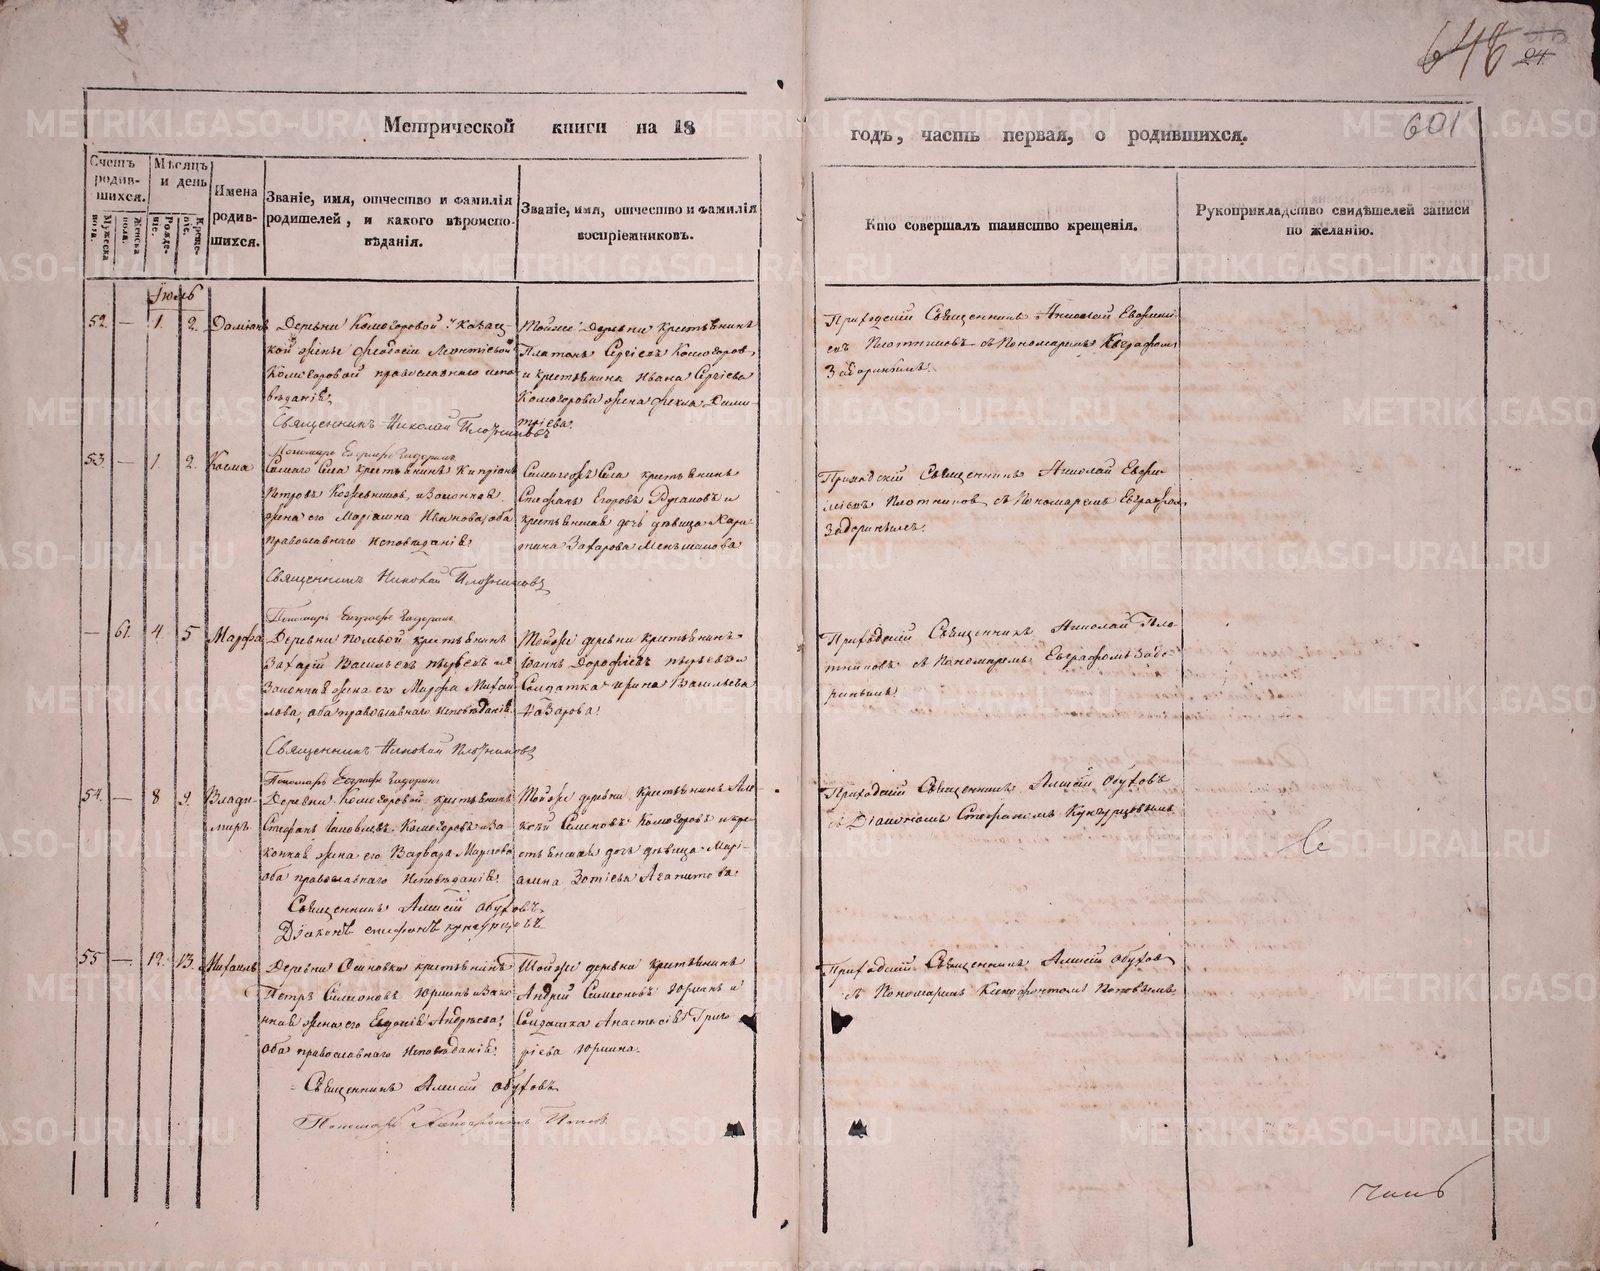 648
24
601
Метрической книги на 18
годъ, часть первая, о родившихся.
Счетъ родившихся.
Мужеска пола.
Женска пола.
Мѣсяцъ и день
Рожденіе.
Крещеніе.
Имена родившихся.
Званіе, имя, отчество и фамилія
родителей, и какого вѣроиспо-
вѣданія.
Званіе, имя, отчество и фамилія
воспріемниковъ.
Кто совершалъ таинство крещенія.
Рукоприкладство свидѣтелей записи
по желанію.
Іюль
52. — 1. 2. Даміанъ
Деревни Комогоровой казац-
кой жены Феодосіи Леонтіевой
Комогоровой православнаго испо-
вѣданія.
Священникъ Николай Плотниковъ
Пономарь Евграфъ Задоринъ
Тойже деревни крестьянинъ
Платонъ Сергіевъ Комогоровъ
и крестьянина Ивана Сергіева
Комогорова жена Фекла Дими-
тріева.
Приходскій Священникъ Николай Евфимі-
евъ Плотниковъ съ Пономаремъ Евграфомъ
Задоринымъ.
53. — 1. 2. Косма
Села крестьянинъ Кипріанъ
Петровъ Кожевниковъ и законная
жена его Маріамна Иванова, оба
православнаго исповѣданія.
Священникъ Николай Плотниковъ
Пономарь Евграфъ Задоринъ
Села крестьянинъ
Стефанъ Егоровъ и
крестьянская дочь дѣвица Хари-
тина Захарова Меньшикова
Приходскій Священникъ Николай Евфи-
міевъ Плотниковъ съ Пономаремъ Евграфомъ
Задоринымъ.
— 61. 4. 5 Марфа
Деревни крестьянинъ
Захарій Васильевъ и
законная жена его Марфа Михай-
лова, оба православнаго исповѣданія.
Священникъ Николай Плотниковъ
Пономарь Евграфъ Задоринъ
Тойже деревни крестьянинъ
Іоаннъ Дорофеевъ и
Солдатка Ирина Васильева
Назарова.
Приходскій Священникъ Николай Пло-
тниковъ съ Пономаремъ Евграфомъ Задо-
ринымъ
54. — 8 9. Влади-
миръ
Деревни Комогоровой крестьянинъ
Стефанъ Іаковлевъ Комогоровъ и за-
конная жена его Варвара Маркова
оба православнаго исповѣданія.
Священникъ Алексій Обуховъ
Діаконъ Стефанъ Кунгурцовъ
Тойже деревни крестьянинъ Але-
ксѣй Семеновъ Комогоровъ и кре-
стьянская дочь дѣвица Марі-
амна Зотіева Агапитова.
Приходскій Священникъ Алексій Обуховъ
съ Діакономъ Стефаномъ Кунгурцовымъ
55 — 12. 13. Михаилъ
Деревни Осиновки крестьянинъ
Петръ Симеоновъ Юринъ и зако-
нная жена его Евдокія Андреева,
оба православнаго исповѣданія.
Священникъ Алексій Обуховъ
Пономарь Ксенофонтъ Поповъ
Тойже деревни крестьянинъ
Андрей Симеоновъ Юринъ и
Солдатка Анастасія Григо-
ріева Юрина.
Приходскій Священникъ Алексій Обуховъ
съ Пономаремъ Ксенофонтомъ Поповымъ
METRIKI.GASO-URAL.RU